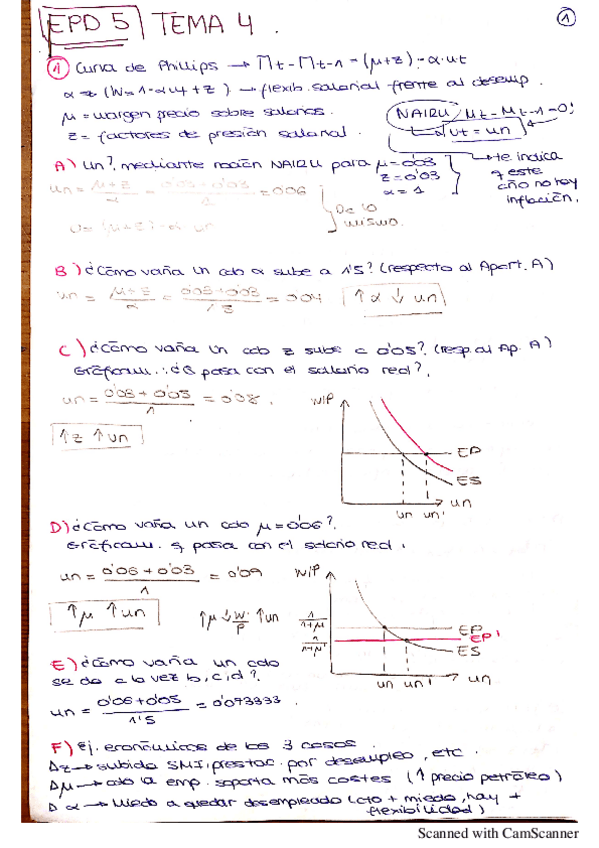 EPD 5 TEMA 4.
1
1 Curva de Phillips → Πt - Πt-1 = (μ+z) - α·ut
α → (W=1-αu+z) → flexib. salarial frente al desemp.
μ = margen precio sobre salarios.
z = factores de presión salarial.
NAIRU / Πt - Πt-1 = 0;
ut = un
te indica q este año no hay inflación.
A) Un?, mediante noción NAIRU para μ=0'03
z=0'03
α=1
un = μ+z/α = 0'03+0'03/1 = 0'06
0 = (μ+z) - α un
Da lo mismo.
B) ¿Cómo varía un cdo α sube a 1'5? (respecto al Apart. A)
un = μ+z/α = 0'03+0'03/1'5 = 0'04
↑α ↓un
C) ¿Cómo varía un cdo z sube a 0'05? (resp. al Ap. A)
Gráficam.: ¿Q pasa con el salario real?
un = 0'03+0'05/1 = 0'08.
↑z ↑un
W/P
EP
ES
un
un un'
D) ¿Cómo varía un cdo μ=0'06?
Gráficam. q pasa con el salario real.
un = 0'06+0'03/1 = 0'09
↑μ ↑un
↑μ ↓W/P ↑un
W/P
1/1+μ
1/1+μ'
EP
EP'
ES
un un' un
E) ¿Cómo varía un cdo
se da a la vez b, c, d?
un = 0'06+0'05/1'5 = 0'073333
F) Ej. económicos de los 3 casos.
Δz → subida SMI, prestac. por desempleo, etc.
Δμ → cdo la emp. soporta más costes (↑ precio petróleo)
Δα → Miedo a quedar desempleado (cto + miedo, hay + flexibilidad)
Scanned with CamScanner